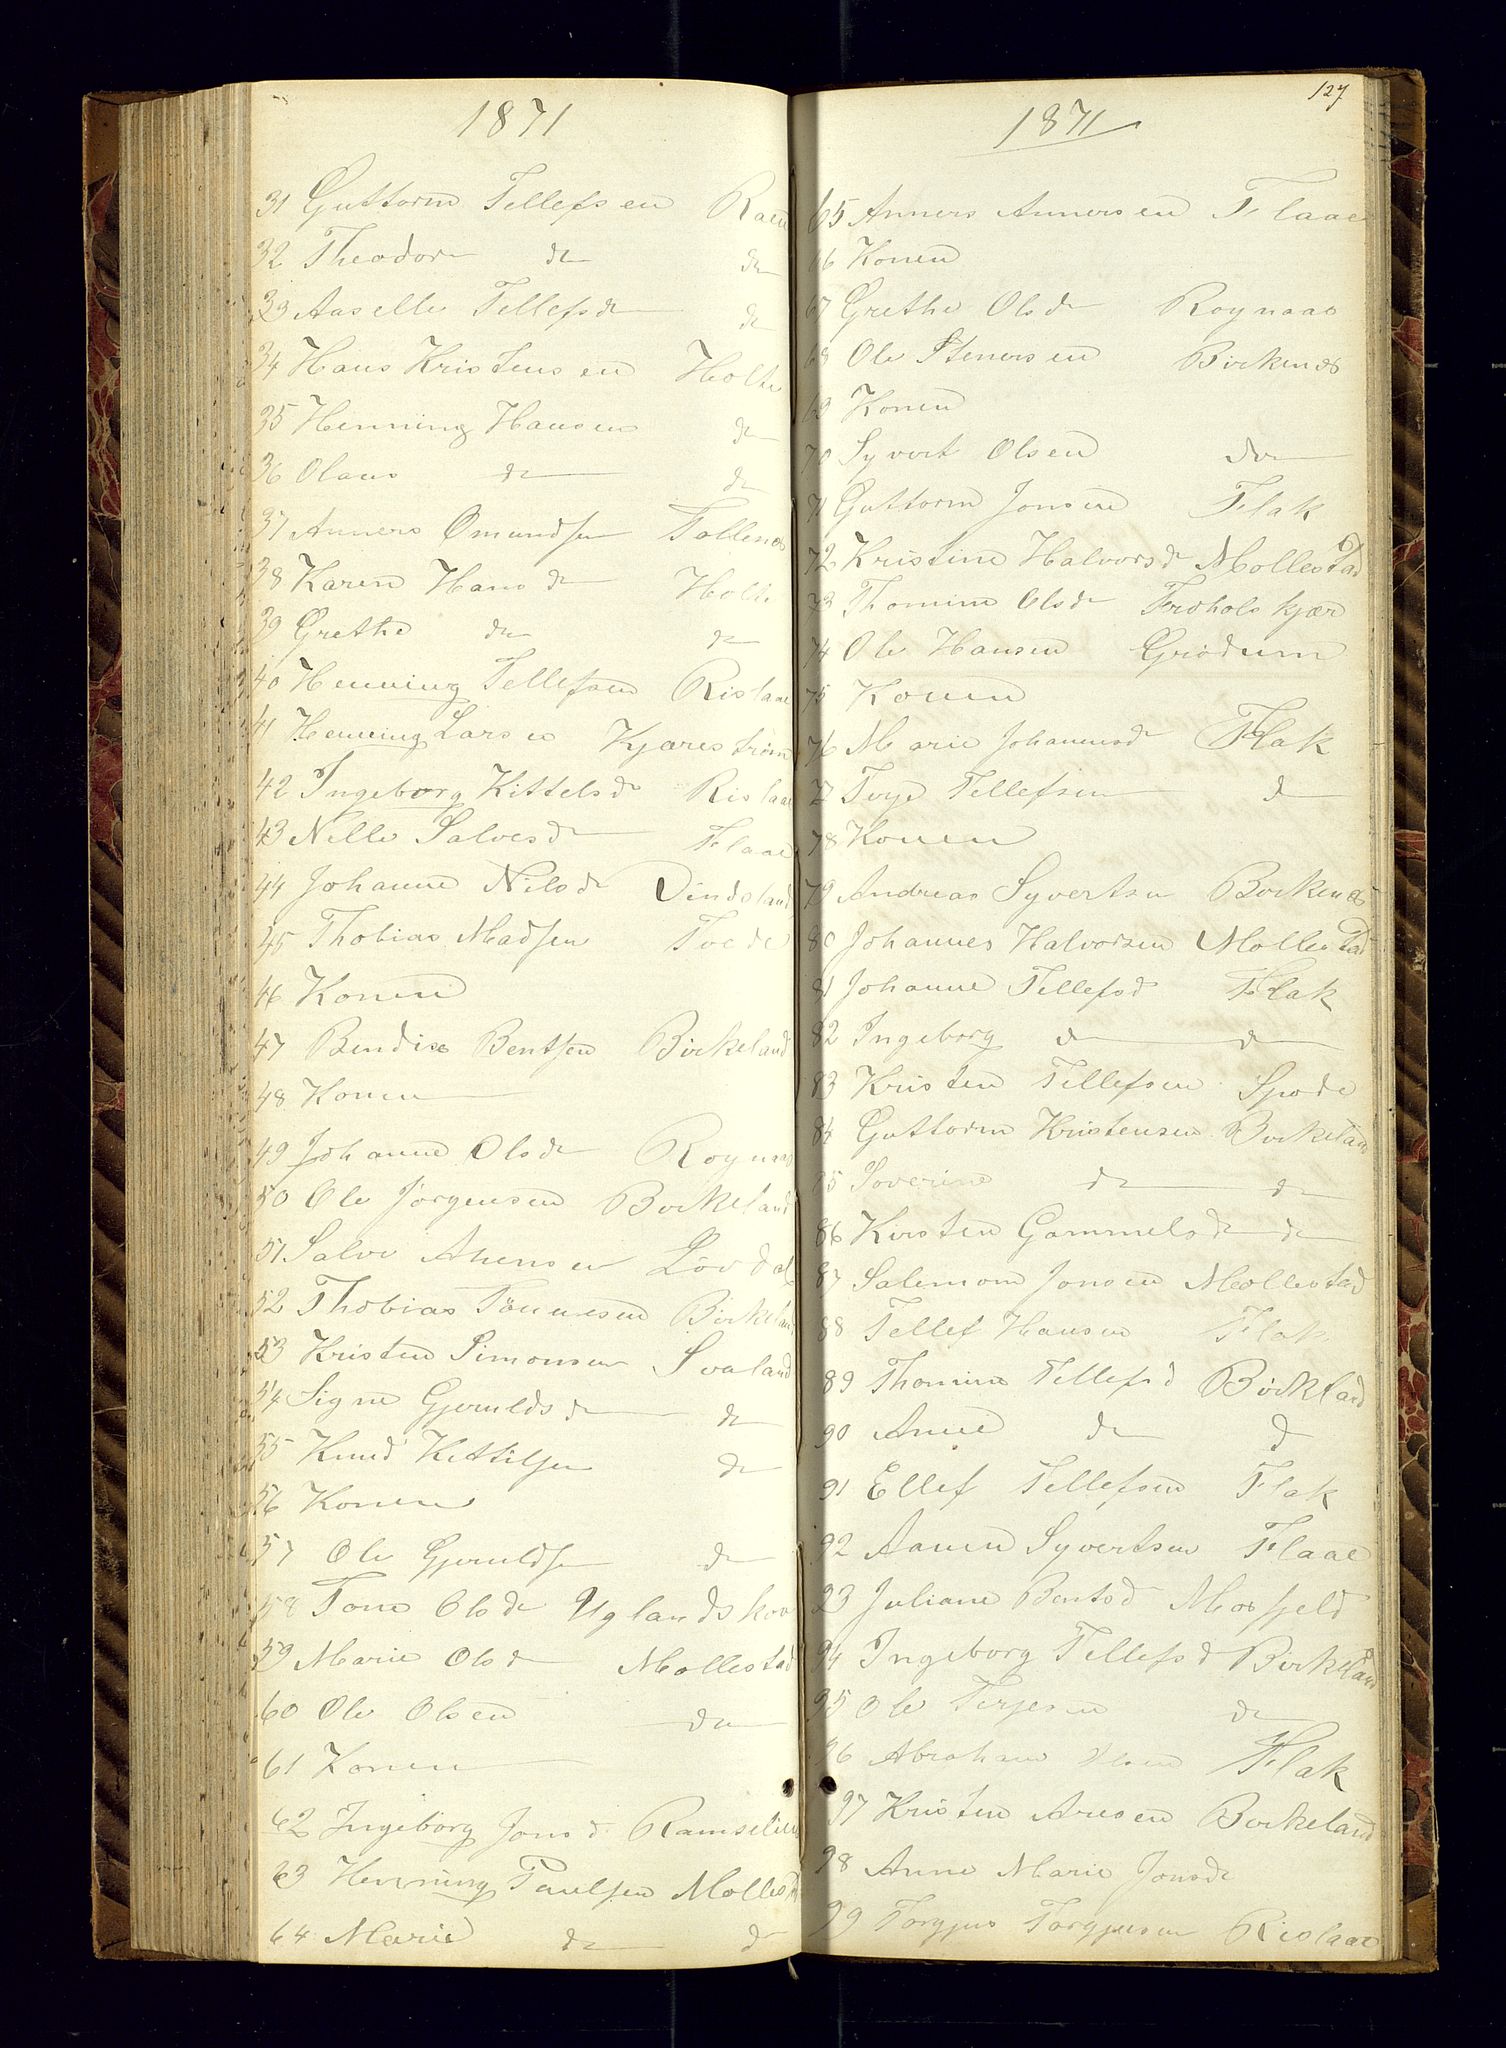 1871
31 Guttorm Tellefsen Raen
32 Theodor do do
33 Aaselle Tellefsd do
34 Hans Kristensen Holte
35 Henning Hansen do
36 Olaus do do
37 Anners Omundsen Tollenæs
38 Karen Hansd Holte
39 Grethe do do
40 Henning Tellefsen Rislaae
41 Henning Larsen Kjærestrøm
42 Ingeborg Kittelsd Rislaae
43 Nelle Salvesd Flaae
44 Johanne Nilsd Dindsland
45 Thobias Madsen Tvede
46 Konen
47 Bendix Bentsen Birkeland
48 Konen
49 Johanne Olsd Roynaas
50 Ole Jørgensen Birkeland
51 Salve Ahensen Løvdal
52 Thobias Tønnesen Birkeland
53 Kristen Simonsen Svaland
54 Signe Gjeruldsd do
55 Knud Kettilsen do
56 Konen
57 Ole Gjeruldsen do
58 Tone Olsd Uglandskov
59 Marie Olsd Mollestad
60 Ole Olsen do
61 Konen
62 Ingeborg Jonsd Ramselien
63 Henning Paulsen Mollestad
64 Marie do do
127
1871
65 Anners Annersen Flaae
66 Konen
67 Grethe Olsd Roynaas
68 Ole Stenersen Birkenæs
69 Konen
70 Syvert Olsen do
71 Guttorm Jonsen Flak
72 Kristine Halvorsd Mollestad
73 Thomine Olsd Froholskjær
74 Ole Hansen Grødum
75 Konen
76 Marie Johannesd Flak
77 Terje Tellefsen d
78 Konen
79 Andreas Syvertsen Birkenæs
80 Johannes Halvorsen Mollestad
81 Johanne Tellefsd Flak
82 Ingeborg do do
83 Kristen Tellefsen Spode
84 Guttorm Kristensen Birkeland
85 Soverine do do
86 Kirsten Gammelsd do
87 Salemom Jonsen Mollestad
88 Tellef Hansen Flak
89 Thomine Tellefsd Birkeland
90 Anne do d
91 Ellef Tellefsen Flak
92 Aanen Syvertsen Flaae
93 Juliane Bentsd Mosfjeld
94 Ingeborg Tellefsd Birkeland
95 Ole Terjesen do
96 Abraham Flak
97 Kristen Aresen Birkeland
98 Anne Marie Jonsd
99 Torgjus Torgjusen Rislaae